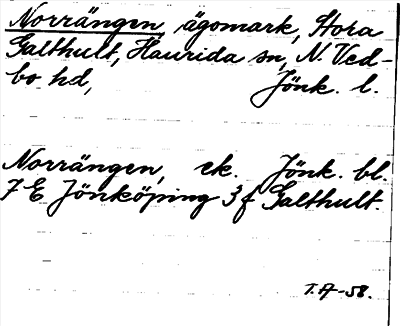 Norrängen, ägomark, Stora
Galthult, Haurida sn, N. Ved-
bo hd, Jönk. l.
Norrängen, ek. Jönk. bl.
7 E Jönköping 3 f Galthult.
T.A-58.